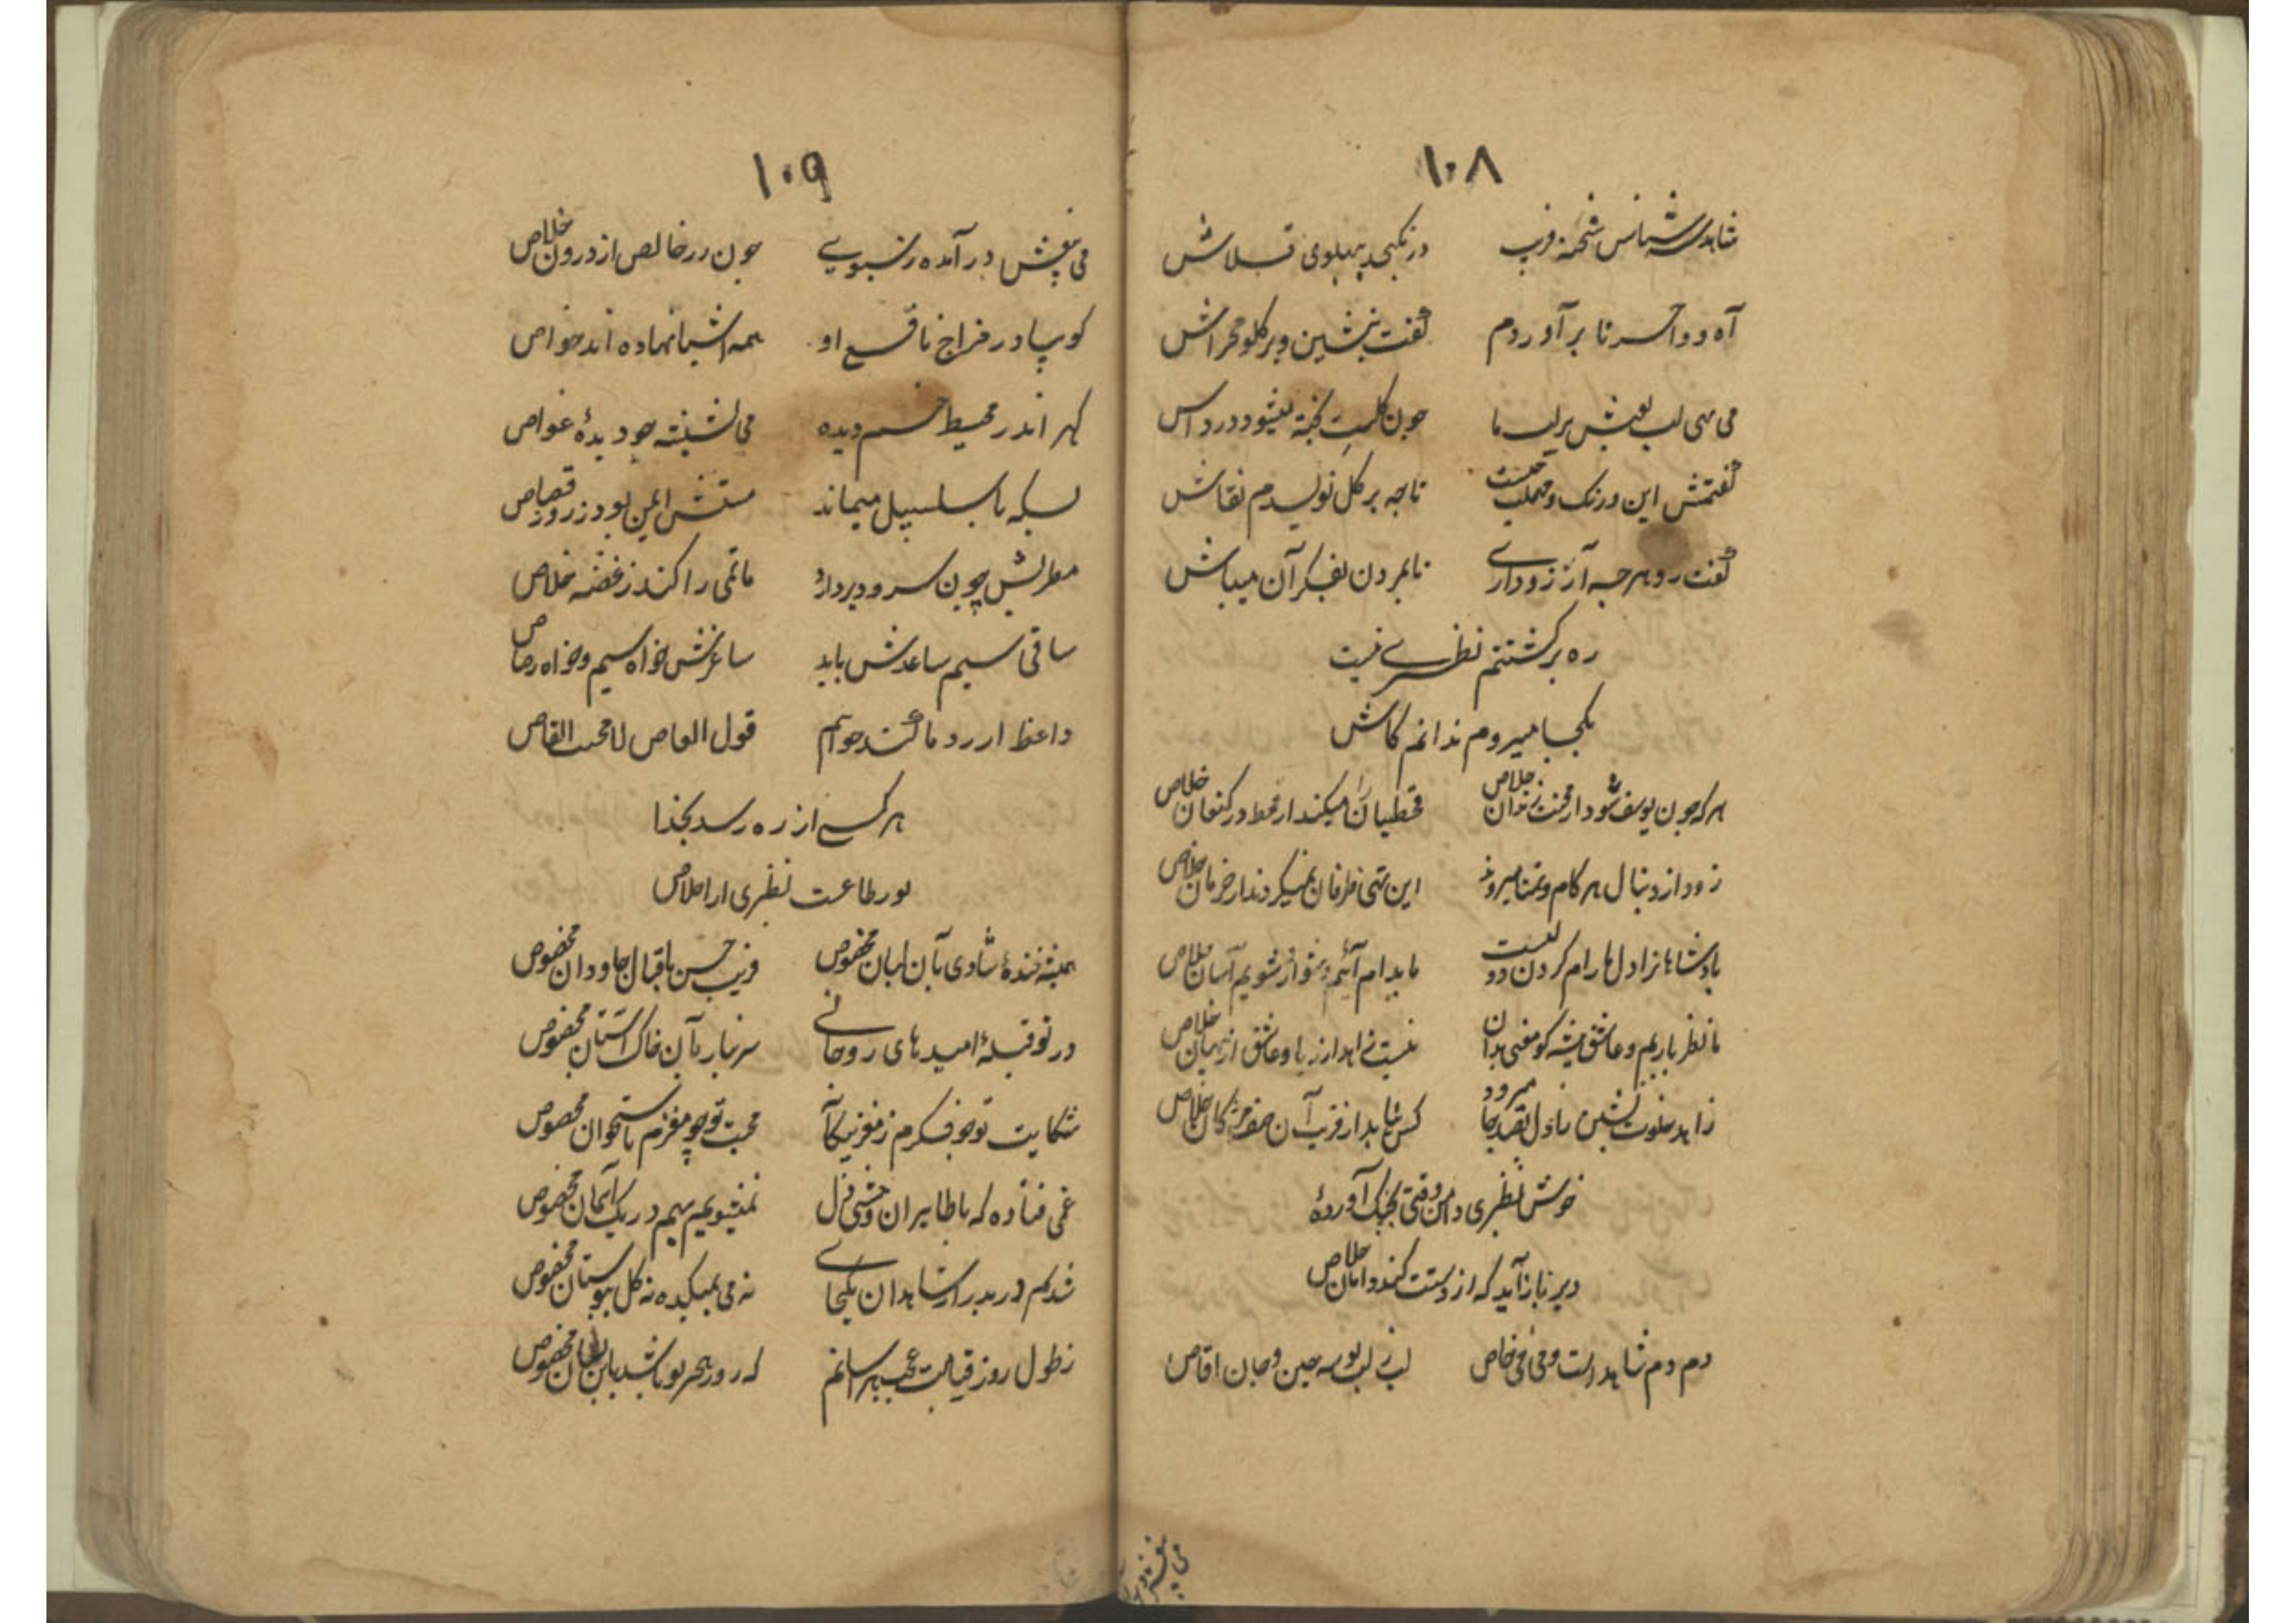 ۱۰۸
شاهد شناس شحنه فریب در نگنجد پهلوی قلاش
آه و واحسرتا برآوردم گفت بنشین و برگلو مخراش
می نهی لب لعبش بر لب ما چون گلیمت نخیه نیشود درداس
گفتمش این ورنگ و مهملت چیست تا چه بر گل نویسدم نقاش
گفت رو هرچه آرزو داری تا بمردن بفکر آن میباش
ره برگشتنم نظیری نیست
بکجا میروم ندانم کاش
هر که چون یوسف شود از محنت زندان خلاص قحطیان را میکند از قحط در کنعان خلاص
زود از دنبال هر کام و تمنا میرود این تهی ظرفان نمیگردند از حرمان خلاص
پادشاها نرا دل ما رام کردن دور نیست ما بدام آئیم دشوار شویم آسان خلاص
ما نظر بازیم و عاشق پیشه کو مفتی بدان نیست زاهد از ریا و عاشق از بهتان خلاص
زاهد خلوت نشین با دل بقصد جا میرود کس نیابد از فریب آن صف مژگان خلاص
خوش نظیری دامن وقتی بچنگ آوردهٔ
دیر باز آید که از دستت کند دامان خلاص
دم دم شاهد است و می می خاص لب بر لب بوسه چین و جان اقاص
می پنقش در

۱۰۹
می بنقش در آمده ز سبوی چون زر خالص از درون خلاص
گوییا در مزاج نافع او همه اشیا نهاده اند خواص
گهر اندر محیط خم دیده می نشیند چو دیدهٔ غواص
بسکه با سلسبیل میماند مستش ایمن بود ز روز قصاص
مطربش چون سرود بردارد ماتمی را کند ز غصه خلاص
ساقی سیم ساعدش باید ساغرش خواه سیم و خواه رصاص
واعظ ار رد ما کند خوانیم قول القاص لا محب القاص
هر کسی از ره رسد بخدا
بو ر طاعت نظیری از اخلاص
همیشه خندهٔ شادی بآن لبان مخصوص فریب حسن باقبال جاودان مخصوص
در تو قبلهٔ امیدهای روحانی سر نیاز بآن خاک آستان مخصوص
شکایت تو چو فکرم ز مغز نیکانه محبت تو چو مغزم باستخوان مخصوص
غمی فتاده که با طایران وحشی غزل نمیشویم بهم در یک آشیان مخصوص
شدیم در بدر از شاهدان یکجای نه می بمیکده نه گل ببوستان مخصوص
ز طول روز قیامت عجب هراسانم که روز هجر تو باشد باین نشان مخصوص